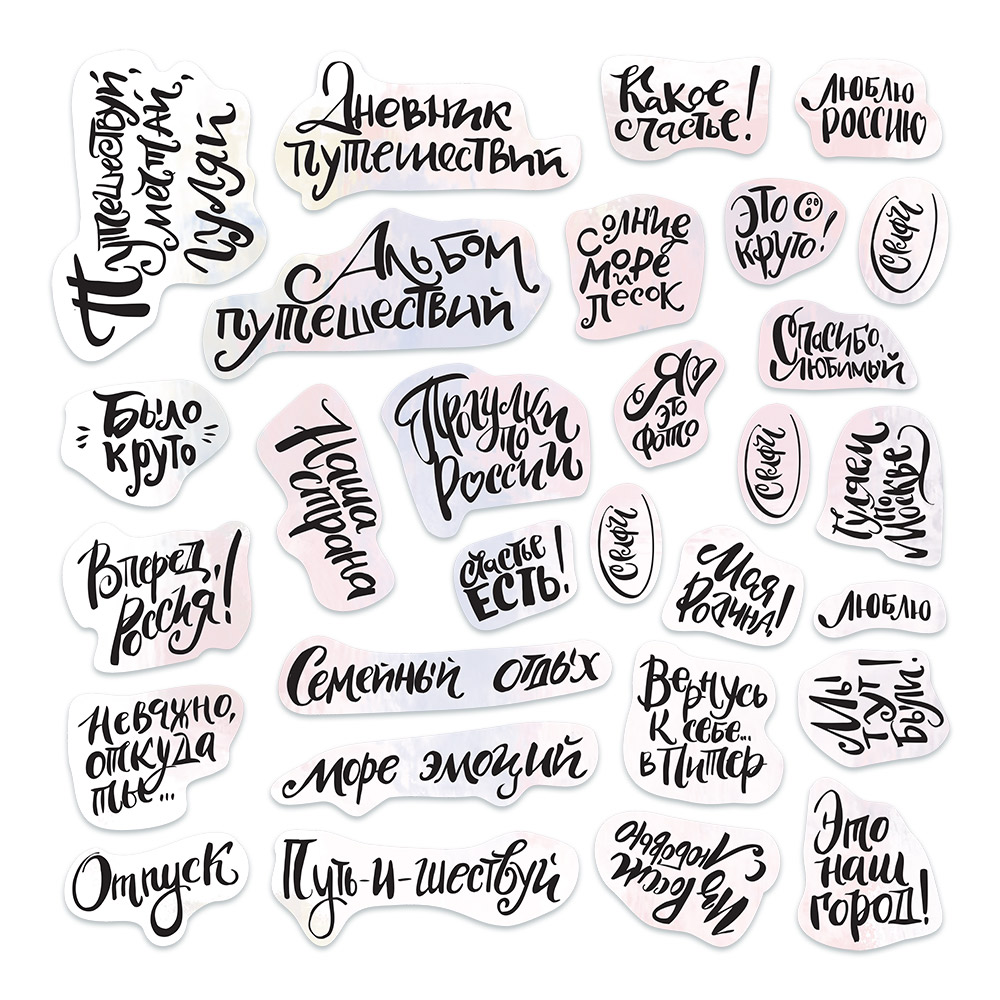 Путешествуй,
мечтай,
гуляй
Дневник
путешествий
Какое
счастье!
Люблю
Россию
Альбом
путешествий
Солнце
море
и
песок
Это
круто!
Селфи
Спасибо,
любимый
Было
круто
Наша
страна
Прогулки
по
России
Я
это
фото
Селфи
Гуляем
по
Москве
Вперед,
Россия!
Счастье
ЕСТЬ!
Селфи
Моя
Родина!
Люблю
Семейный отдых
Вернусь
к себе...
в Питер
Мы
тут
были!
Неважно,
откуда
ты...
Море эмоций
Отпуск
Путь-и-шествуй
Из России
с любовью
Это
наш
город!